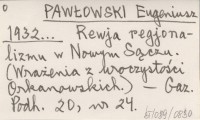 PAWŁOWSKI Eugeniusz
1932... Rewja regjona-
lizmu w Nowym Sączu.
(Wrażenia z uroczystości
Orkanowskich.) — Gaz.
Podh. 20, nr 24.